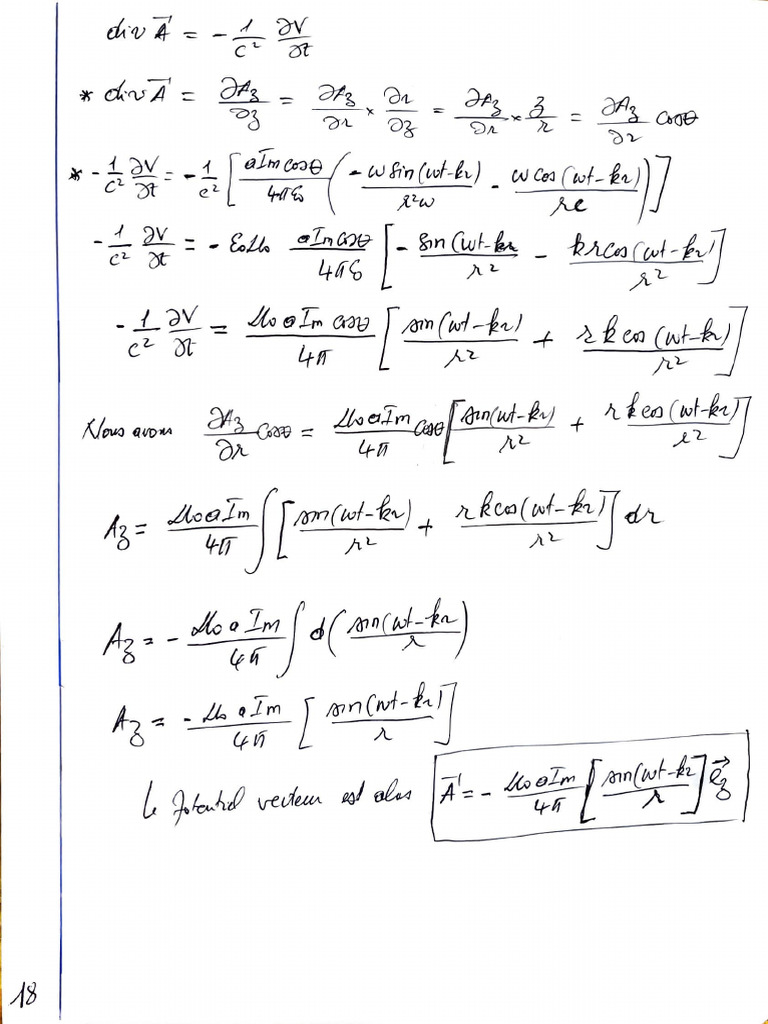 div A⃗ = - 1/c² ∂V/∂t
* div A⃗ = ∂A_z/∂z = ∂A_z/∂r × ∂r/∂z = ∂A_z/∂r × z/r = ∂A_z/∂r cosθ
* - 1/c² ∂V/∂t = - 1/c² [ a I_m cosθ / 4πε₀ ( - ω sin(ωt-kr) / r²ω - ω cos(ωt-kr) / rc ) ]
- 1/c² ∂V/∂t = - ε₀μ₀ a I_m cosθ / 4πε₀ [ - sin(ωt-kr) / r² - kr cos(ωt-kr) / r² ]
- 1/c² ∂V/∂t = μ₀ a I_m cosθ / 4π [ sin(ωt-kr) / r² + r k cos(ωt-kr) / r² ]
Nous avons ∂A_z/∂r cosθ = μ₀ a I_m / 4π cosθ [ sin(ωt-kr) / r² + r k cos(ωt-kr) / r² ]
A_z = μ₀ a I_m / 4π ∫ [ sin(ωt-kr) / r² + r k cos(ωt-kr) / r² ] dr
A_z = - μ₀ a I_m / 4π ∫ d( sin(ωt-kr / r )
A_z = - μ₀ a I_m / 4π [ sin(ωt-kr) / r ]
Le Potentiel vecteur est alors A⃗ = - μ₀ a I_m / 4π [ sin(ωt-kr / r ] e⃗_z
18